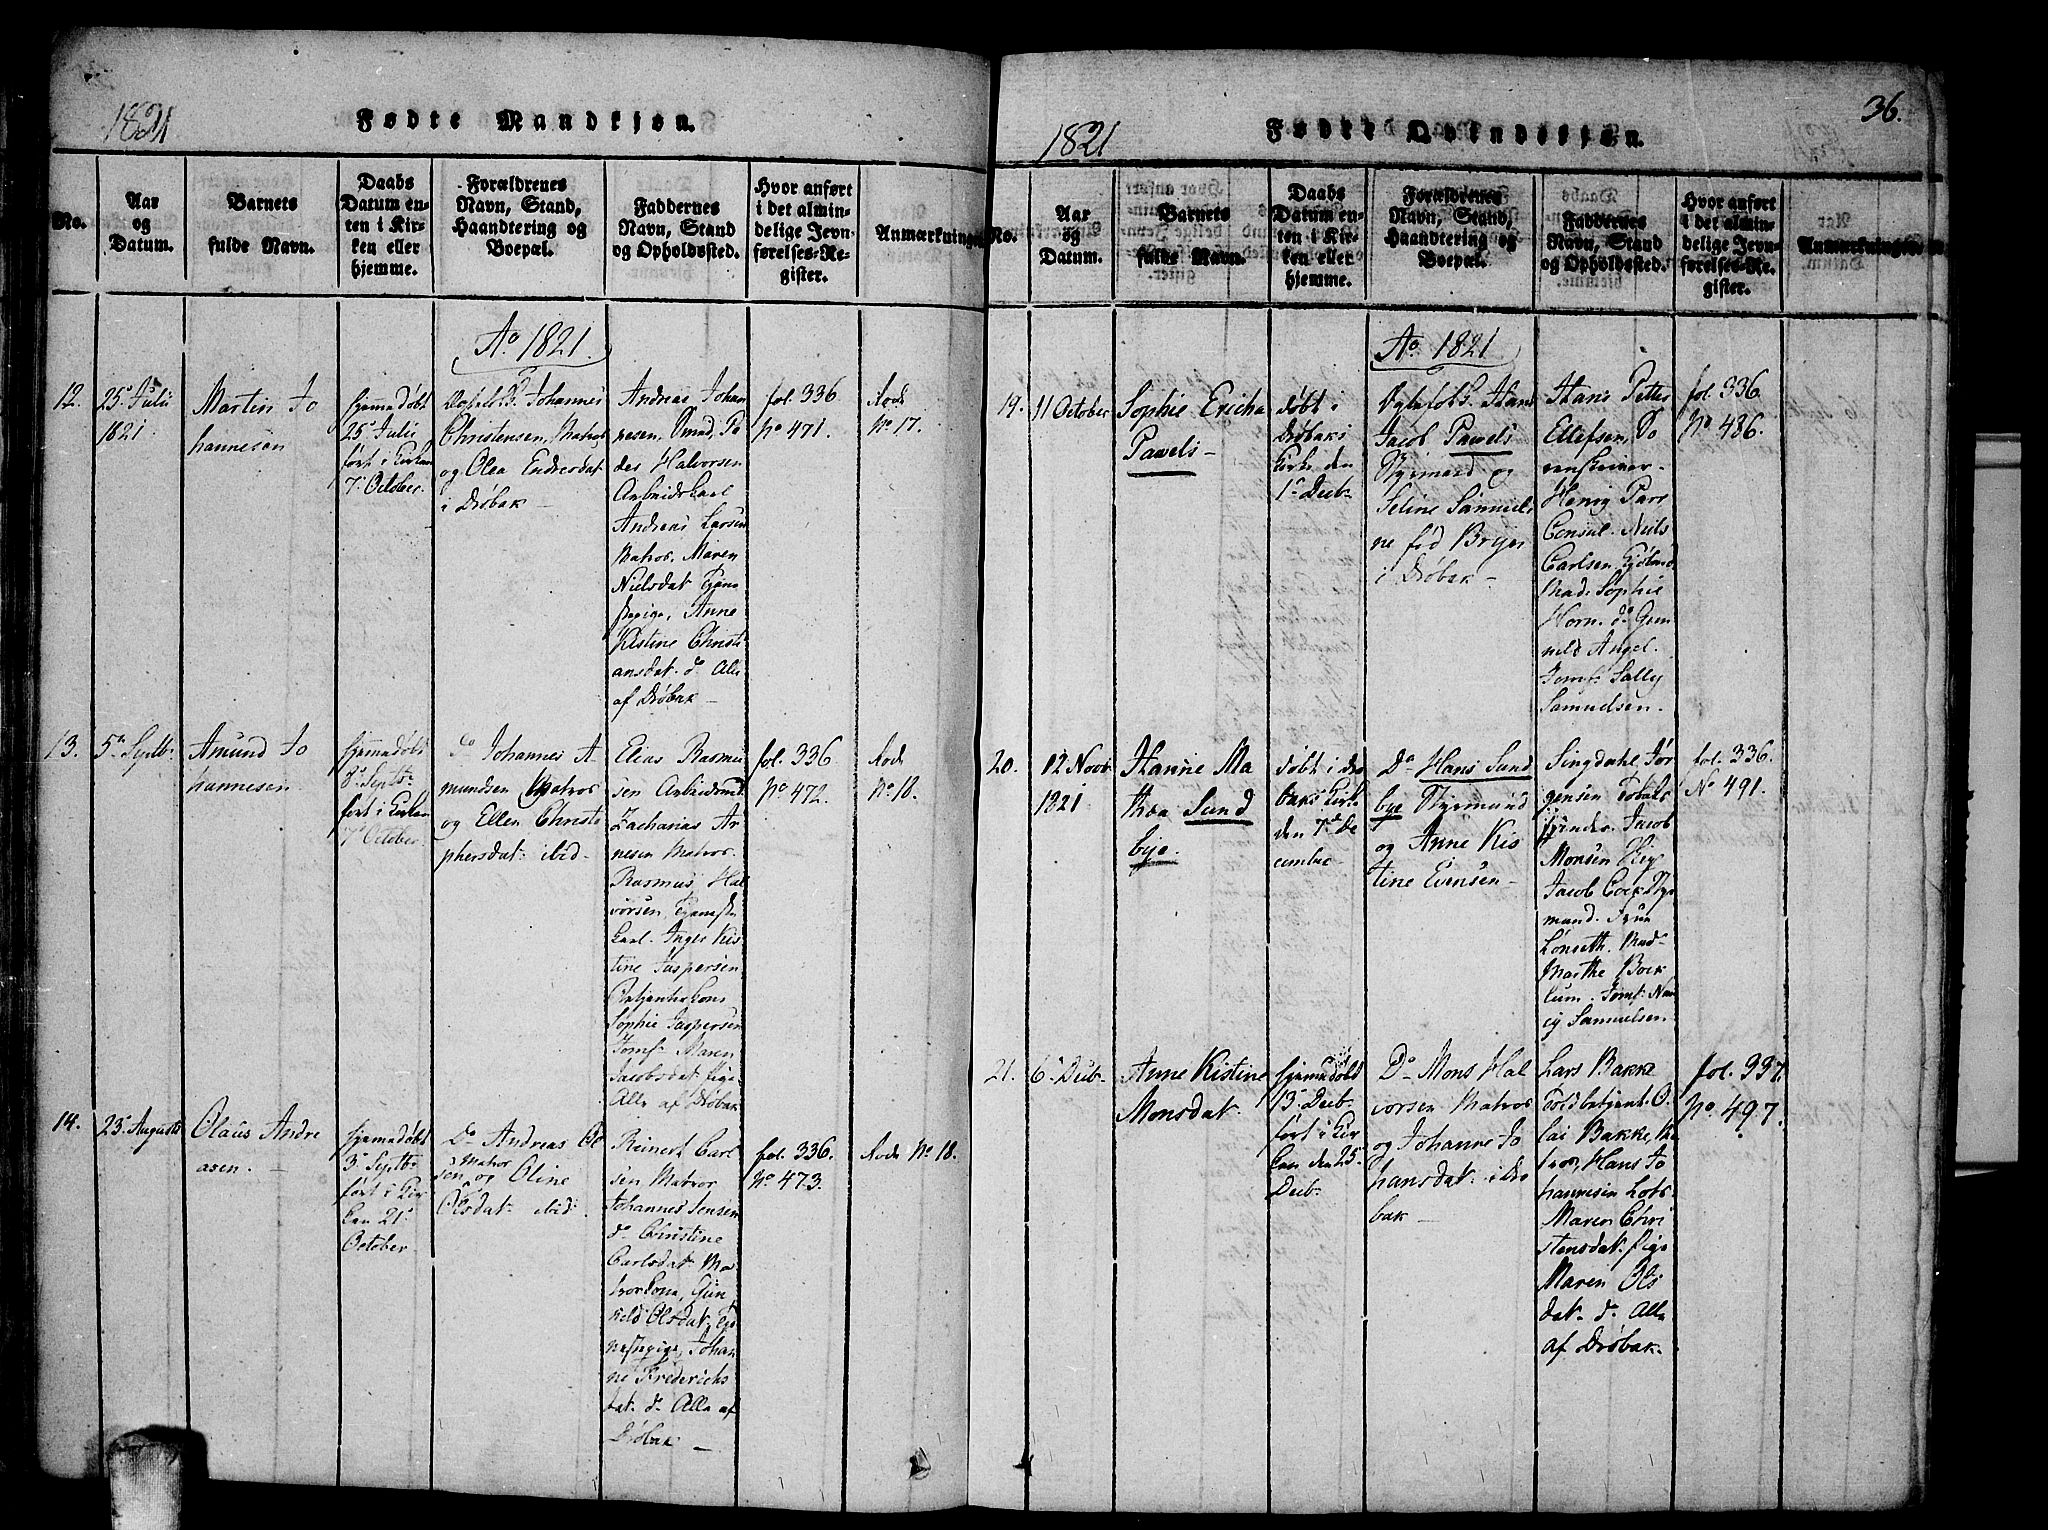 1821
Fødte Mandkjøn.
No.
Aar
og
Datum.
Barnets
fulde Navn.
Daabs
Datum en-
ten i Kir-
ken eller
hjemme.
Forældrenes
Navn, Stand,
Haandtering og
Boepæl.
Faddernes
Navn, Stand
og Opholdssted.
Hvor anført
i det almin-
delige Jevn-
førelses-Re-
gister.
Anmærkninger
Ao 1821.
12.
25 Julii
1821.
Martin Jo
hannesen
hjemmedøbt
25 Julii
ført i Kirken
7 October.
Johannes
Christensen, Matros
og Olea Endresdat
i Drøbak
Andreas Johan
nesen, Pe
der Halvorsen
Arbeidskarl
Andreas Larsen
Matros, Maren
Nielsdat Tjene
stepige, Anne
Kistine Christi
ansdat. do Alle
af Drøbak
fol. 336
No 471.
No 17.
13.
5te Septb.
Amund Jo
hannesen
hjemmedøbt
8 Septb
ført i Kirken
7 October.
Do Johannes A
mundsen Matros
og Ellen Christo
phersdat. ibid
Elias Rasmus
sen Arbeidsmd
Zacharias Ar
nesen Matros.
Rasmus Hal
vorsen, Tjeneste
karl. Inger Kis
tine Jaspersen
Betjentekone
Sophie Jaspersen
Jomf. Maren
Jacobsdat pige
Alle af Drøbak
fol. 336
No 472.
No 18.
14.
23 Augusti
Olaus Andre
asen.
hjemmedøbt
3 Septb
ført i Kir
ken 21
October
Do Andreas Ol
sen Matros og Oline
Olsdat. ibid.
Reinert Carl
sen Matros
Johannes Jensen
do Christine
Carlsdat Ma
troskone, Gun
nild Olsdat, Tje
nestepige, Johan
ne Frederichs
dat. do Alle af
Drøbak
fol. 336.
No 473.
No 18.
36.
1821
Fødte Qvindekjøn.
No.
Aar
og
Datum.
Barnets
fulde Navn.
Daabs
Datum en-
ten i Kir-
ken eller
hjemme.
Forældrenes
Navn, Stand,
Haandtering og
Boepæl.
Faddernes
Navn, Stand
og Opholdssted.
Hvor anført
i det almin-
delige Jevn-
førelses-Re-
gister.
Anmærkninger
Ao 1821
19.
11 October
Sophie Ericha
Pawels
døbt i
Drøbaks
Kirke den
1 Decb.
Hans
Jacob Pawels
Styrmand og
Seline Samueli
ne fød Bryn
i Drøbak
Hans Petter
Ellefsen,
Henrig Parr
Consul. Niels
Carlsen Kjøbmd
Mad. Sophie
Horn. do Gun
nild Angel.
Jomf. Sally
Samuelsen.
fol. 336.
No 486.
20.
12 Novb.
1821
Hanne Ma
thea Sund
bye.
døbt i Drø
baks Kirke
den 7 De
cembr.
Do Hans Sund
bye Styrmand
og Anne Kis
tine Evensen
Singdahl Jør
gensen
Jacob
Monsen
Jacob Cock Styr
mand. Frue
Lønseth. Mad.
Marthe Bock
lum. Jomf. Nan
cy Samuelsen
fol. 336.
No 491.
21.
6 Decb.
Anne Kistine
Monsdat.
hjemmedøbt
13 Decb.
ført i Kir
ken den 25
Decb.
Do Mons Hal
vorsen Matros
og Johanne Jo
hansdat. i Drø
bak
Lars Bakke
Toldbetjent. O
lai Bakke, Ma
tros, Hans Jo
hannesen Lots
Maren Chri
stensdat. pige
Maren Ols
dat. do Alle
af Drøbak.
fol. 337.
No 497.